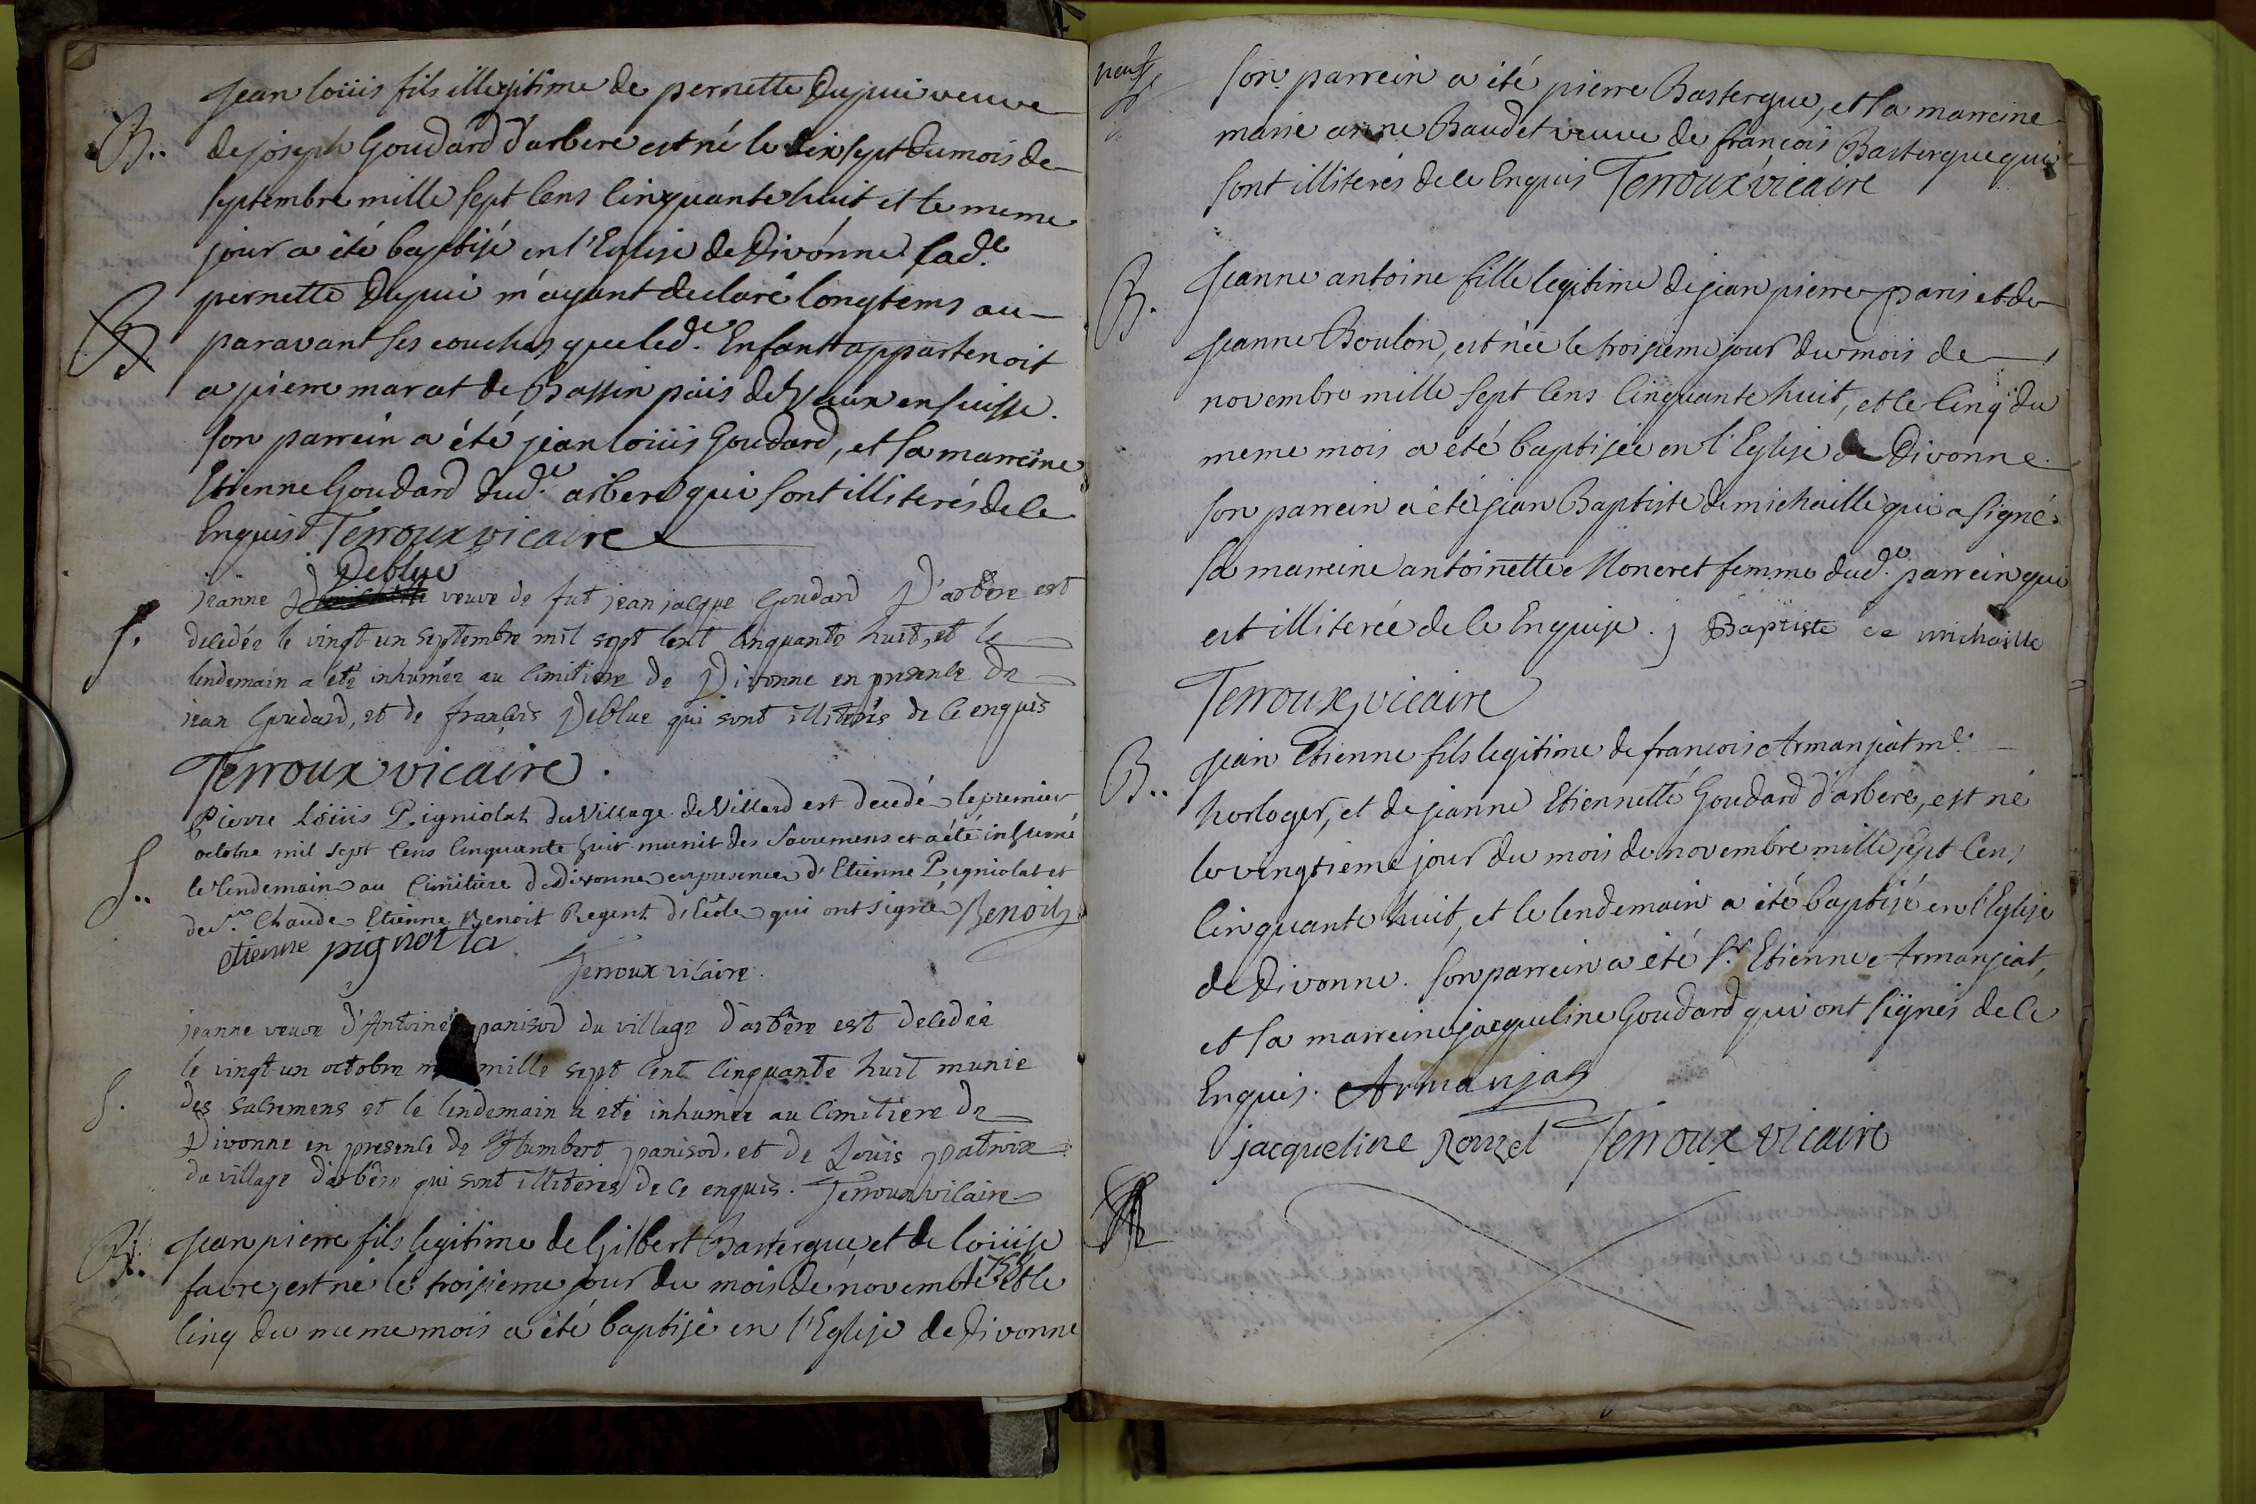 jean loüis fils illegitime de pernette Dupui veuve
B.. de joseph Goudard d'arbere est né le dix sept du mois de
septembre mille sept cens cinquante huit et le meme
jour a été baptisé en l'Eglise de Divonne lad.e
pernette Dupui m'ayant declaré longtems au-
paravant ses couches que led.e Enfant appartenoit
a pierre marat de Bassin païs de en suisse.
son parrein a été jean loüis Goudard, et sa marreine
Etienne Goudard dud.e arbere qui sont illiterés de ce
Enquis Terroux vicaire
Deblue
jeanne veuve de fut jean jacque Goudard D'arbere est
S. decedée le vingt-un septembre mil sept cent cinquante huit, et le
lendemain a été inhumée au cimitiere de Divonne en presence de
jean Goudard, et de françois Deblue qui sont illiterés de ce enquis
Terroux vicaire.
Pierre Loüis Pigniolat du Village de Villard est decedé le premier
octobre mil sept cens cinquante huit munit des Sacremens et a été inhumé
S.. le lendemain au Cimitiere de Divonne en presence d'Etienne Pigniolat et
de S.r Claude Etienne Benoit Regent d'Ecole qui ont signé Benoit
etienne pignolla
Terroux vicaire.
jeanne veuve d'Antoine panisod du village d'arbere est decedée
le vingt-un octobre mille sept cent cinquante huit munie
S. des sacremens et le lendemain a été inhumée au cimetiere de
Divonne en presence de Humbert panisod, et de Louis patroix
du village d'arbere qui sont illiterés de ce enquis. Terroux vicaire
B.. jean pierre fils legitime de Gilbert Bastergue, et de loüise
1758
favre, est né le troisieme jour du mois de novembre et le
cinq du meme mois a été baptisé en l'Eglise de Divonne
neuf
son parrein a été pierre Bastergue, et sa marreine
marie anne Baudet veuve de françois Bastergue qui
sont illiterés de ce Enquis Terroux vicaire
B. jeanne antoine fille legitime de jean pierre paris et de
jeanne Boulon, est née le troisieme jour du mois de
novembre mille sept cens cinquante huit, et le cinq du
meme mois a été baptisée en l'Eglise de Divonne.
son parrein a été jean Baptiste de michaille qui a signé
sa marreine antoinette Moneret femme dud.e parrein qui
est illiterée de ce Enquise. j Baptiste de michaille
Terroux vicaire
B.. jean Etienne fils legitime de francois Armanjat m.e
horloger, et de jeanne Etiennette Goudard d'arbere, est né
le vingtieme jour du mois de novembre mille sept cens
cinquante huit, et le lendemain a été baptisé en l'Eglise
de Divonne. son parrein a été S.r Etienne Armanjat,
et sa marreine jacqueline Goudard qui ont signés de ce
Enquis. Armanjat
jacqueline Rouzet Terroux vicaire